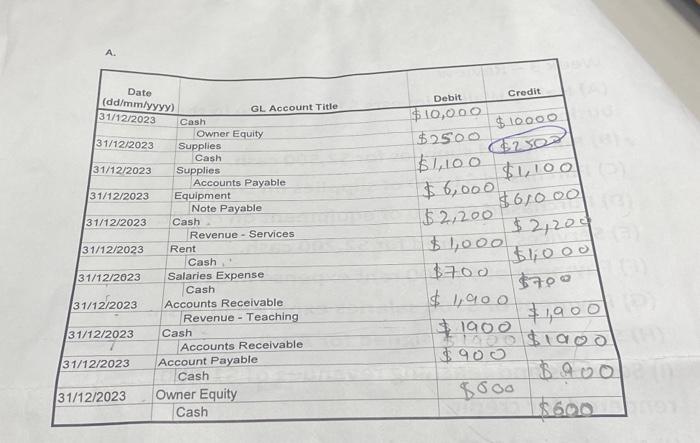 A.
Date
(dd/mm/yyyy) GL Account Title Debit Credit
31/12/2023 Cash $10,000
Owner Equity $10000
31/12/2023 Supplies $2500
Cash $2500
31/12/2023 Supplies $1,100
Accounts Payable $1,100
31/12/2023 Equipment $6,000
Note Payable $6,000
31/12/2023 Cash $2,200
Revenue - Services $2,200
31/12/2023 Rent $1,000
Cash $1,000
31/12/2023 Salaries Expense $700
Cash $700
31/12/2023 Accounts Receivable $1,900
Revenue - Teaching $1,900
31/12/2023 Cash $1900
Accounts Receivable $1900
31/12/2023 Account Payable $900
Cash $900
31/12/2023 Owner Equity $600
Cash $600